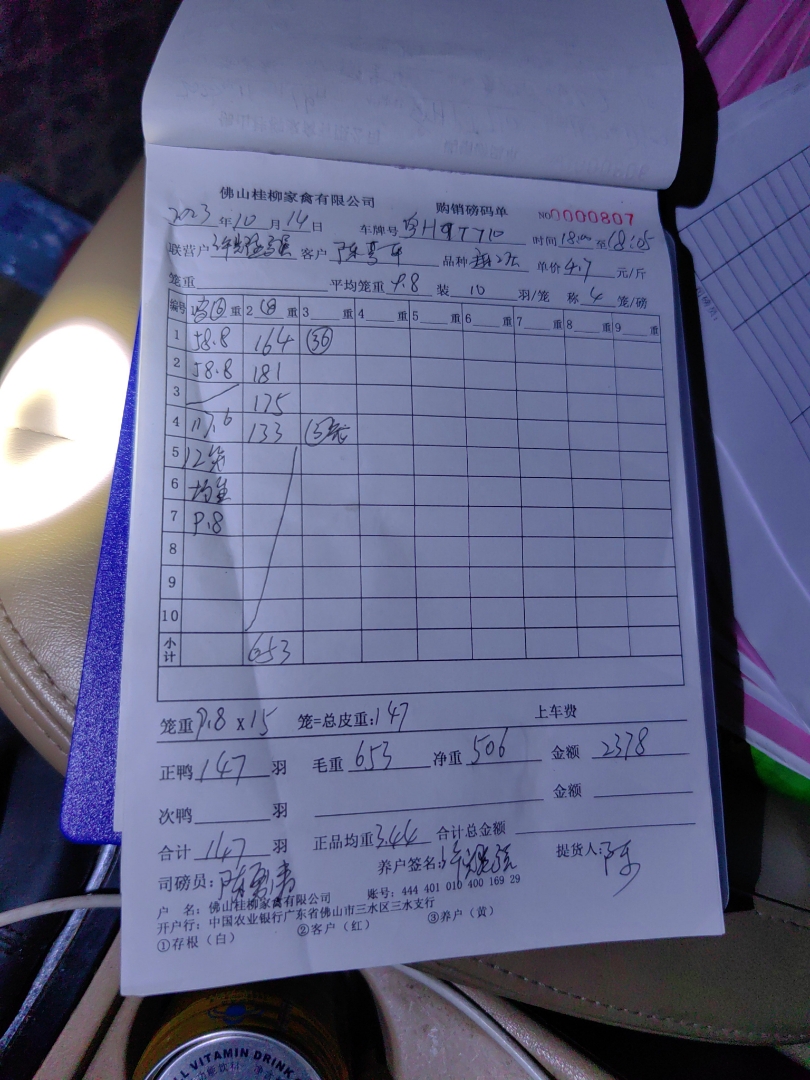 佛山桂柳家禽有限公司 购销磅码单 NO0000807
2023年10月14日 车牌号 H9T710 时间18:00至18:05
联营户 客户 品种 单价4.7元/斤
笼重 平均笼重9.8 装10羽/笼 称4笼/磅
编号 重 2 重 3 重 4 重 5 重 6 重 7 重 8 重 9 重
1 58.8 164
2 58.8 181
3 175
4 117.6 133
5 12笼
6 均重
7 9.8
8
9
10
小计 653
笼重9.8x15 笼=总皮重:147 上车费
正鸭147羽 毛重653 净重506 金额2378
次鸭 羽 金额
合计147羽 正品均重3.44 合计总金额
司磅员: 养户签名: 提货人:陈
户 名:佛山桂柳家禽有限公司 账号:444 401 010 400 169 29
开户行:中国农业银行广东省佛山市三水区三水支行
①存根(白) ②客户(红) ③养户(黄)
LL VITAMIN DRINK